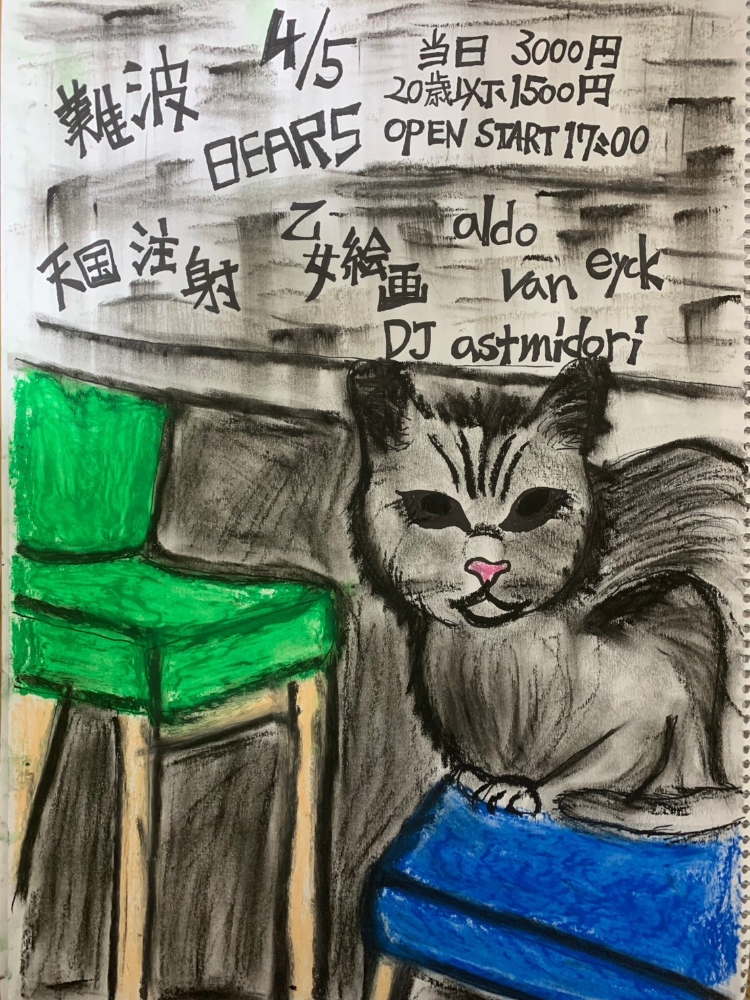 4/5
難波
BEARS
当日 3000円
20歳以下1500円
OPEN START 17:00
天国注射
乙女絵画
aldo van eyck
DJ astmidori